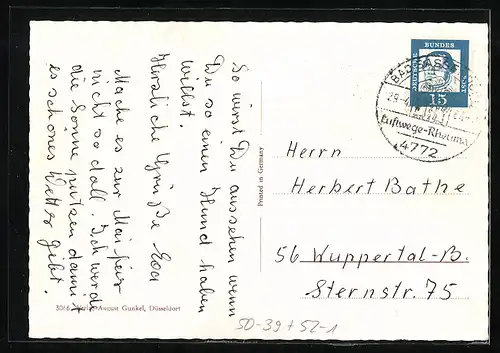 So wirst Du aussehen wenn
Du so einen Hund haben
willst.
Herzliche Grüße Eva
Mache es zur Maifeier
nicht so doll. Ich werde
die Sonne putzen damit
es schönes Wetter gibt.
3066 Verlag August Gunkel, Düsseldorf
Printed in Germany
DEUTSCHE BUNDESPOST
15
BAD SASSE
Luftwege-Rheuma
4772
Herrn
Herbert Bathe
56 Wuppertal-B.
Sternstr. 75
50-39+52-1